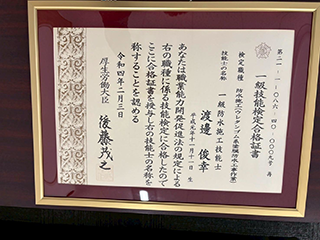 第二一-一-〇八六-四〇-〇〇〇九号
一級技能検定合格証書
検定職種
防水施工(ウレタンゴム系塗膜防水工事作業)
技能士の名称
一級防水施工技能士
渡邊 俊幸
平成元年十一月十一日生
あなたは職業能力開発促進法の規定による
右の職種に係る技能検定に合格したので
ここに合格証書を授与し右の技能士の名称を
称することを認める
令和四年二月三日
厚生労働大臣
後藤茂之